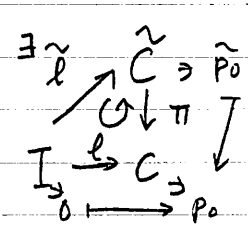 ∃ l̃ C̃ ∋ p̃₀
↺ ↓ π
I →l C
0 ↦ p₀